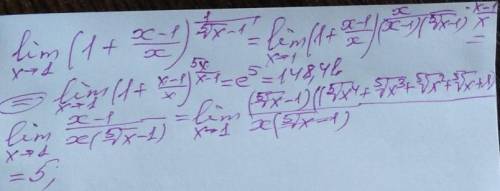 lim x→1 (1 + (x-1)/x)^(1/(⁵√x-1)) = lim x→1 (1 + (x-1)/x)^(x/((x-1)(⁵√x-1)) · (x-1)/x) =
= lim x→1 (1 + (x-1)/x)^(5x/(x-1)) = e⁵ = 148,4
lim x→1 (x-1)/(x(⁵√x-1)) = lim x→1 ((⁵√x-1)(⁵√x⁴+⁵√x³+⁵√x²+⁵√x+1))/(x(⁵√x-1))
= 5;